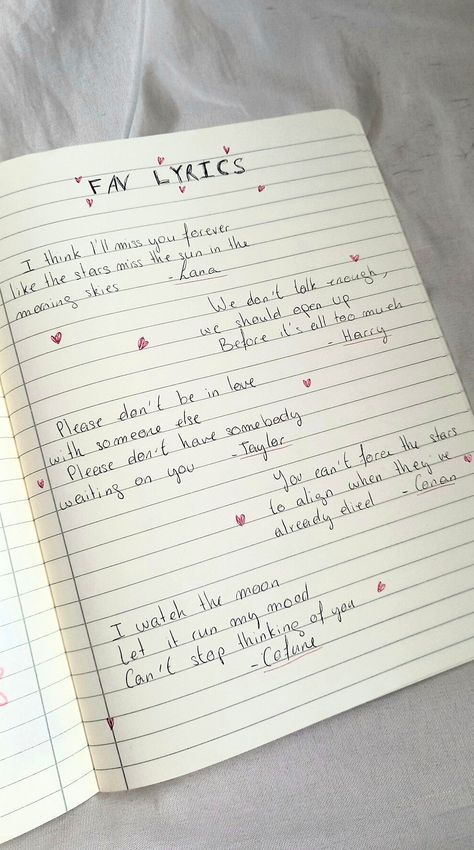 FAV LYRICS
I think I'll miss you forever
like the stars miss the sun in the
morning skies -Lana
We don't talk enough,
we should open up
Before it's all too much
- Harry
Please don't be in love
with someone else
Please don't have somebody
waiting on you -Taylor
You can't force the stars
to align when they've
already died - Conan
I watch the moon
Let it run my mood
Can't stop thinking of you
-Cafune